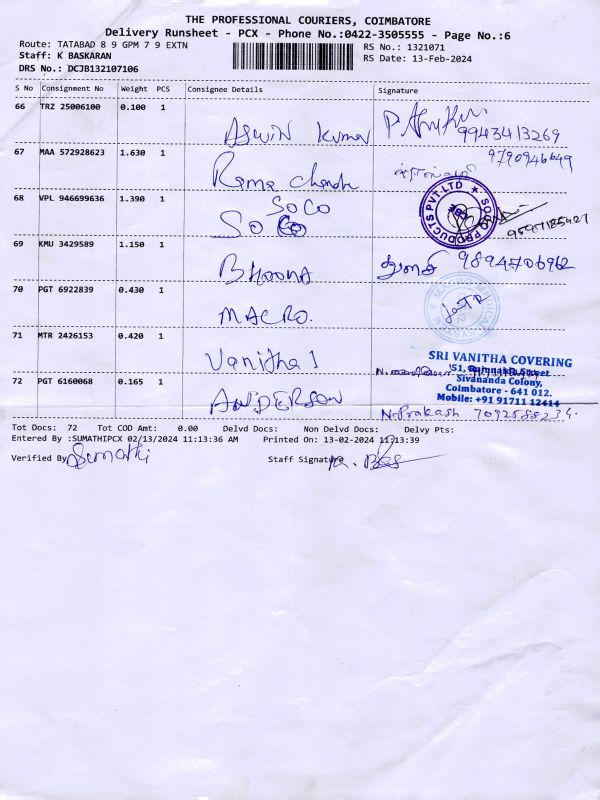 THE PROFESSIONAL COURIERS, COIMBATORE
Delivery Runsheet - PCX - Phone No.:0422-3505555 - Page No.:6
Route: TATABAD 8 9 GPM 7 9 EXTN
RS No.: 1321071
Staff: K BASKARAN
RS Date: 13-Feb-2024
DRS No.: DCJB132107106
S No Consignment No Weight PCS Consignee Details Signature
66 TRZ 25006100 0.100 1
Aswin Kumar
9943413269
67 MAA 572928623 1.630 1
9790946649
Rama
68 VPL 946699636 1.390 1
SOCO
SOCO PRODUCTS PVT LTD
69 KMU 3429589 1.150 1
BHOOMA
9894706962
70 PGT 6922839 0.430 1
MACRO.
71 MTR 2426153 0.420 1
Vanitha
SRI VANITHA COVERING
Street
Sivananda Colony,
Coimbatore - 641 012.
Mobile: +91 91711 12414
72 PGT 6160068 0.165 1
ANDERSON
N. Prakash
Tot Docs: 72 Tot COD Amt: 0.00 Delvd Docs: Non Delvd Docs: Delvy Pts:
Entered By :SUMATHIPCX 02/13/2024 11:13:36 AM Printed On: 13-02-2024 11:13:39
Verified By Sumathi Staff Signature